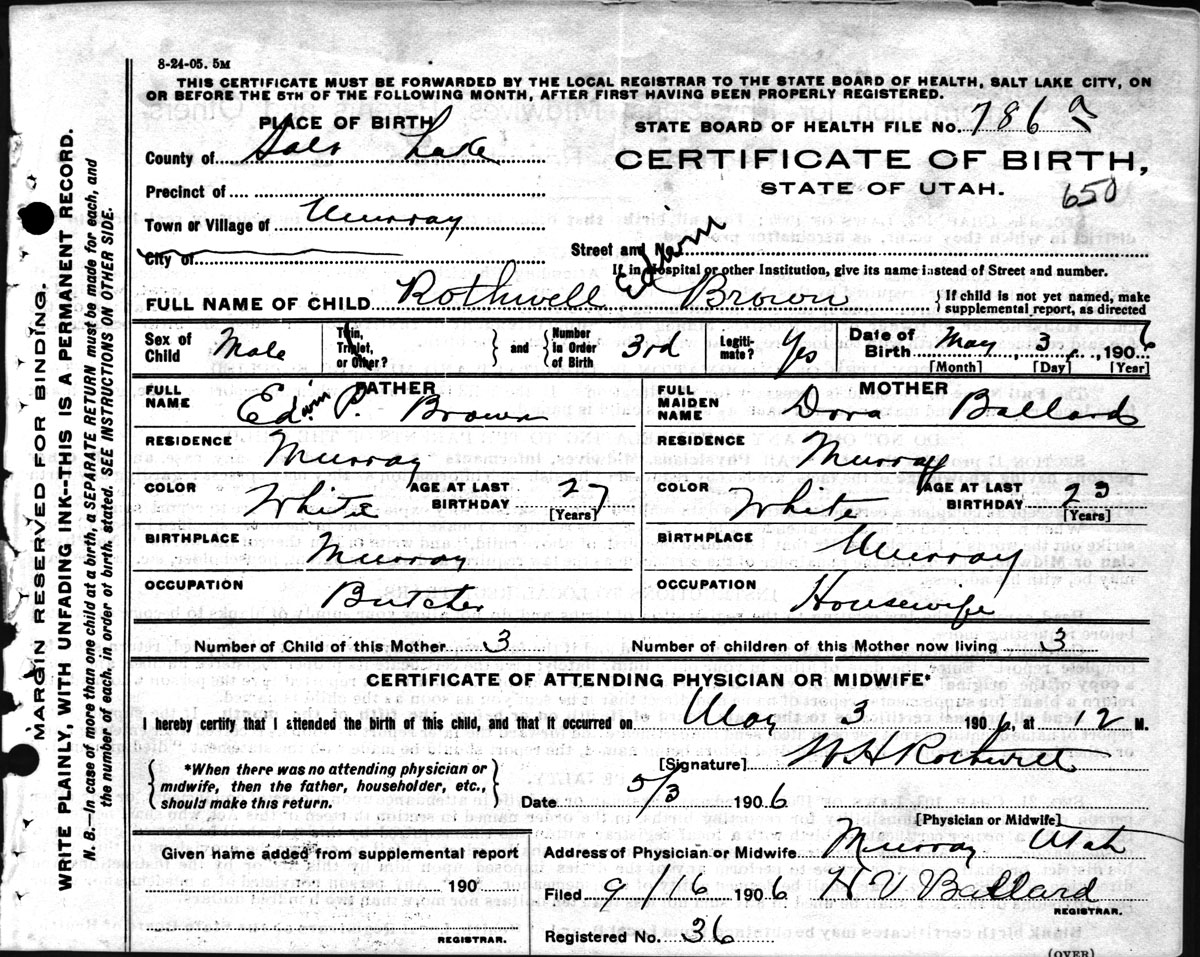 8-24-05. 5M
THIS CERTIFICATE MUST BE FORWARDED BY THE LOCAL REGISTRAR TO THE STATE BOARD OF HEALTH, SALT LAKE CITY, ON
OR BEFORE THE 5TH OF THE FOLLOWING MONTH, AFTER FIRST HAVING BEEN PROPERLY REGISTERED.
PLACE OF BIRTH
County of Salt Lake
Precinct of
Town or Village of Murray
City of
STATE BOARD OF HEALTH FILE No. 786
CERTIFICATE OF BIRTH,
STATE OF UTAH.
650
Street and No.
If in Hospital or other Institution, give its name instead of Street and number.
FULL NAME OF CHILD Rothwell Edwin Brown
If child is not yet named, make
supplemental report, as directed
Sex of Child Male
Twin, Triplet, or Other? and Number in Order of Birth 3rd
Legitimate? Yes
Date of Birth May 3, 1906
[Month] [Day] [Year]
FATHER
FULL NAME Edwin P. Brown
RESIDENCE Murray
COLOR White AGE AT LAST BIRTHDAY 27 [Years]
BIRTHPLACE Murray
OCCUPATION Butcher
MOTHER
FULL MAIDEN NAME Dora Ballard
RESIDENCE Murray
COLOR White AGE AT LAST BIRTHDAY 23 [Years]
BIRTHPLACE Murray
OCCUPATION Housewife
Number of Child of this Mother 3 Number of children of this Mother now living 3
CERTIFICATE OF ATTENDING PHYSICIAN OR MIDWIFE*
I hereby certify that I attended the birth of this child, and that it occurred on May 3 1906, at 12 M.
*When there was no attending physician or
midwife, then the father, householder, etc.,
should make this return.
[Signature] W H Rothwell
Date 5/3 1906
[Physician or Midwife]
Given name added from supplemental report
190
REGISTRAR.
Address of Physician or Midwife Murray Utah
Filed 9/16 1906 H V Ballard
REGISTRAR.
Registered No. 36
(OVER)
MARGIN RESERVED FOR BINDING.
WRITE PLAINLY, WITH UNFADING INK--THIS IS A PERMANENT RECORD.
N. B.—In case of more than one child at a birth, a SEPARATE RETURN must be made for each, and
the number of each, in order of birth, stated. SEE INSTRUCTIONS ON OTHER SIDE.